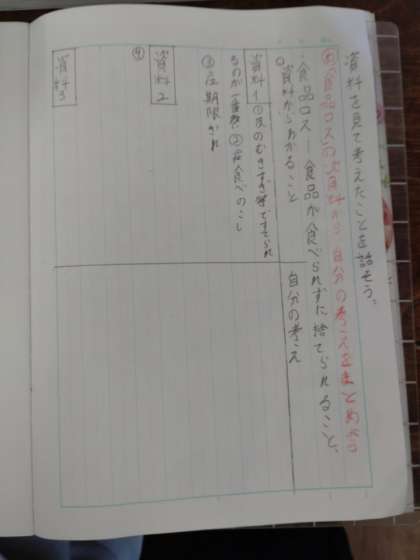 資料を見て考えたことを話そう。
「食品ロス」の資料から自分の考えをまとめよう
食品ロス―食品が食べられずに捨てられること。
資料からわかること
自分の考え
資料1 ①皮のむきすぎ等ですてられ
るのが一番 ② 食べのこし
③ 期限ぎれ
資料2
④
資料3